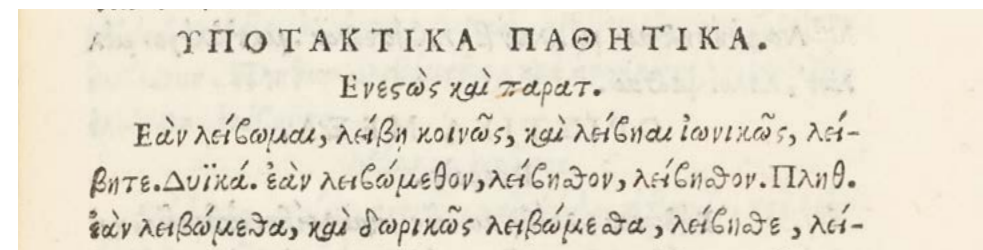 ΥΠΟΤΑΚΤΙΚΑ ΠΑΘΗΤΙΚΑ.
Ενεϛὼς καὶ παρατ.
Εὰν λείβωμαι, λείβη κοινῶς, καὶ λείβηαι ἰωνικῶς, λεί-
βητε. Δυϊκά. ἐὰν λειβώμεθον, λείβηθον, λείβηθον. Πληθ.
ἐὰν λειβώμεθα, καὶ δωρικῶς λειβώμεθα, λείβηθε, λεί-